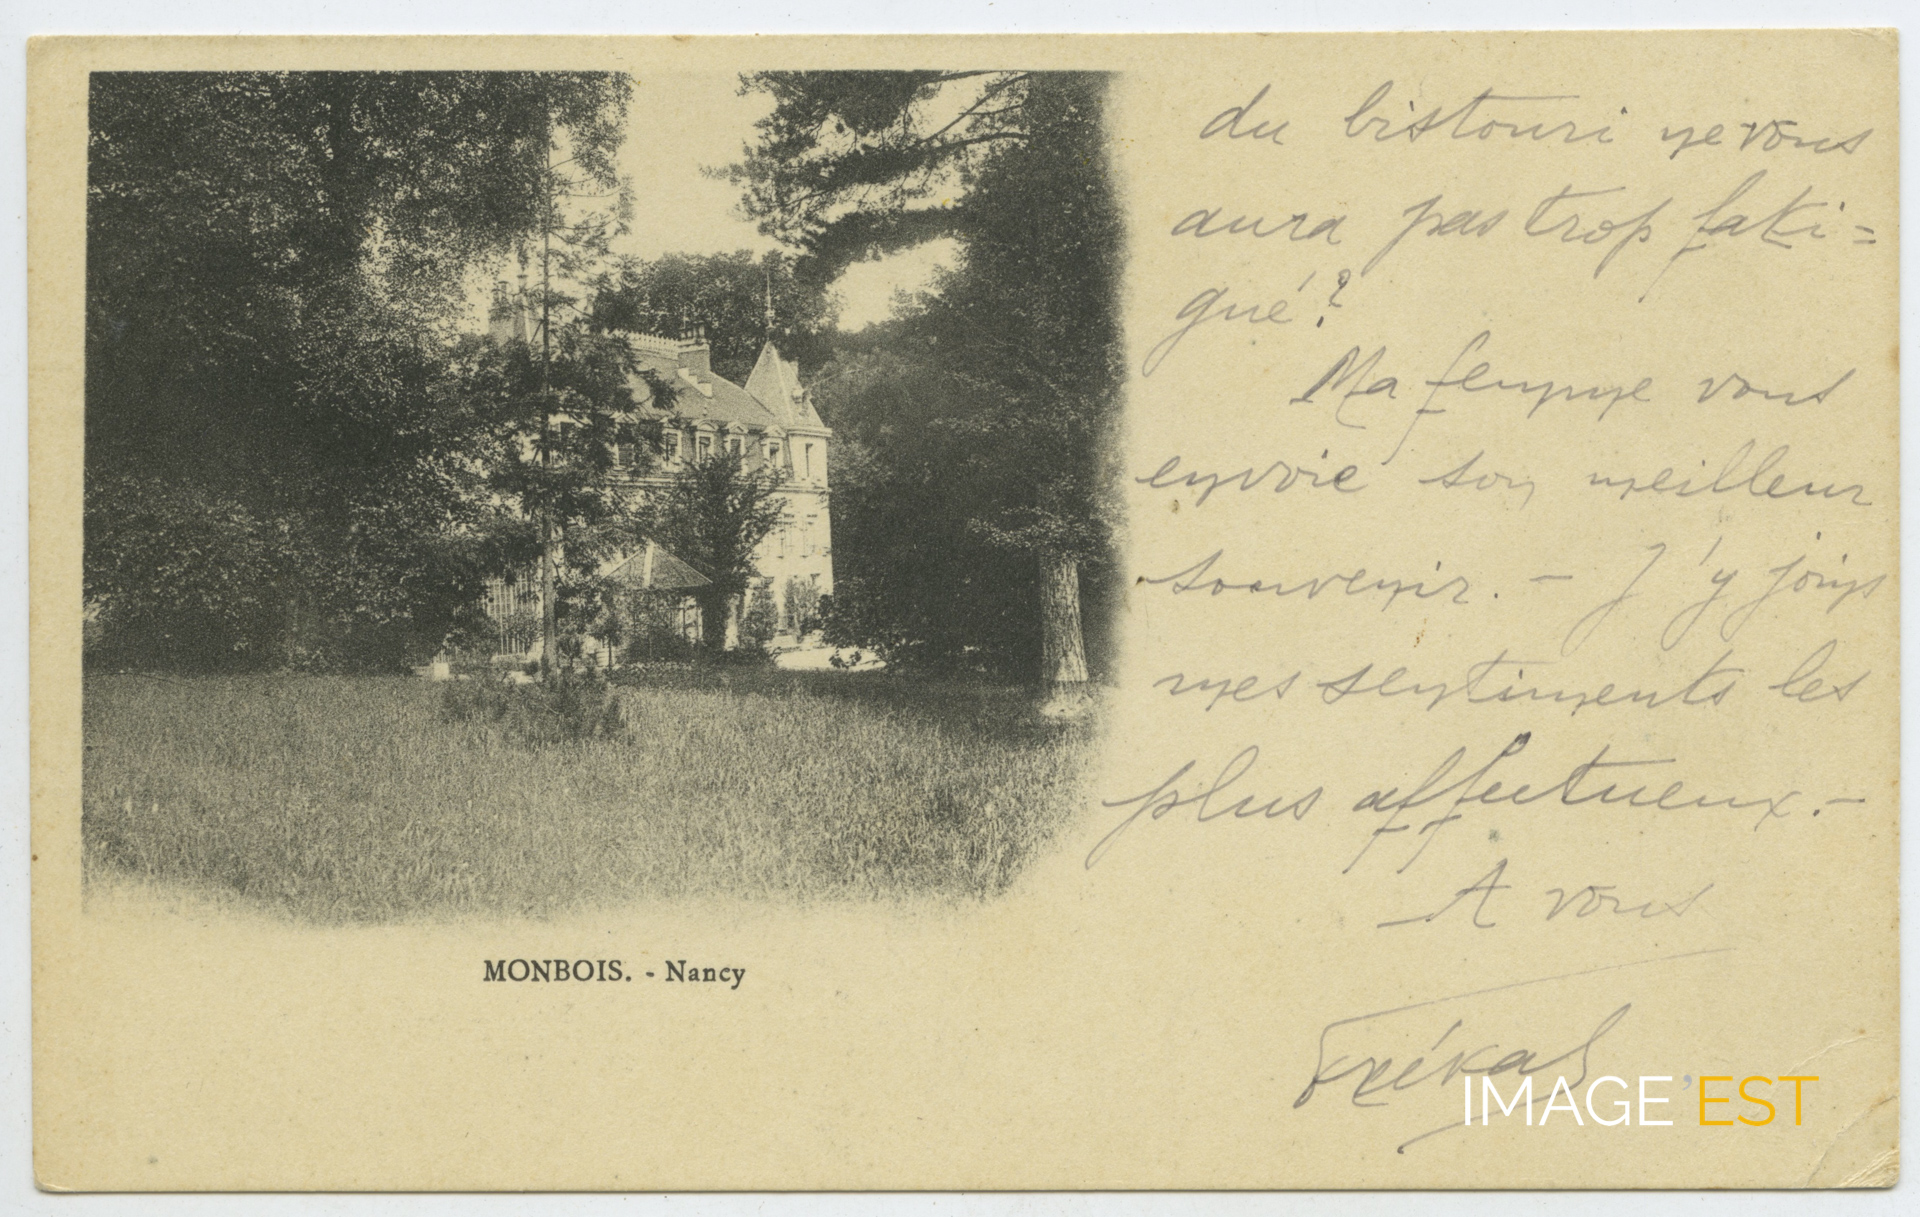 du bistouri ne vous
aura pas trop fati=
gué?
Ma femme vous
envoie son meilleur
souvenir. – J'y joins
mes sentiments les
plus affectueux. –
A vous
MONBOIS. - Nancy
IMAGE'EST